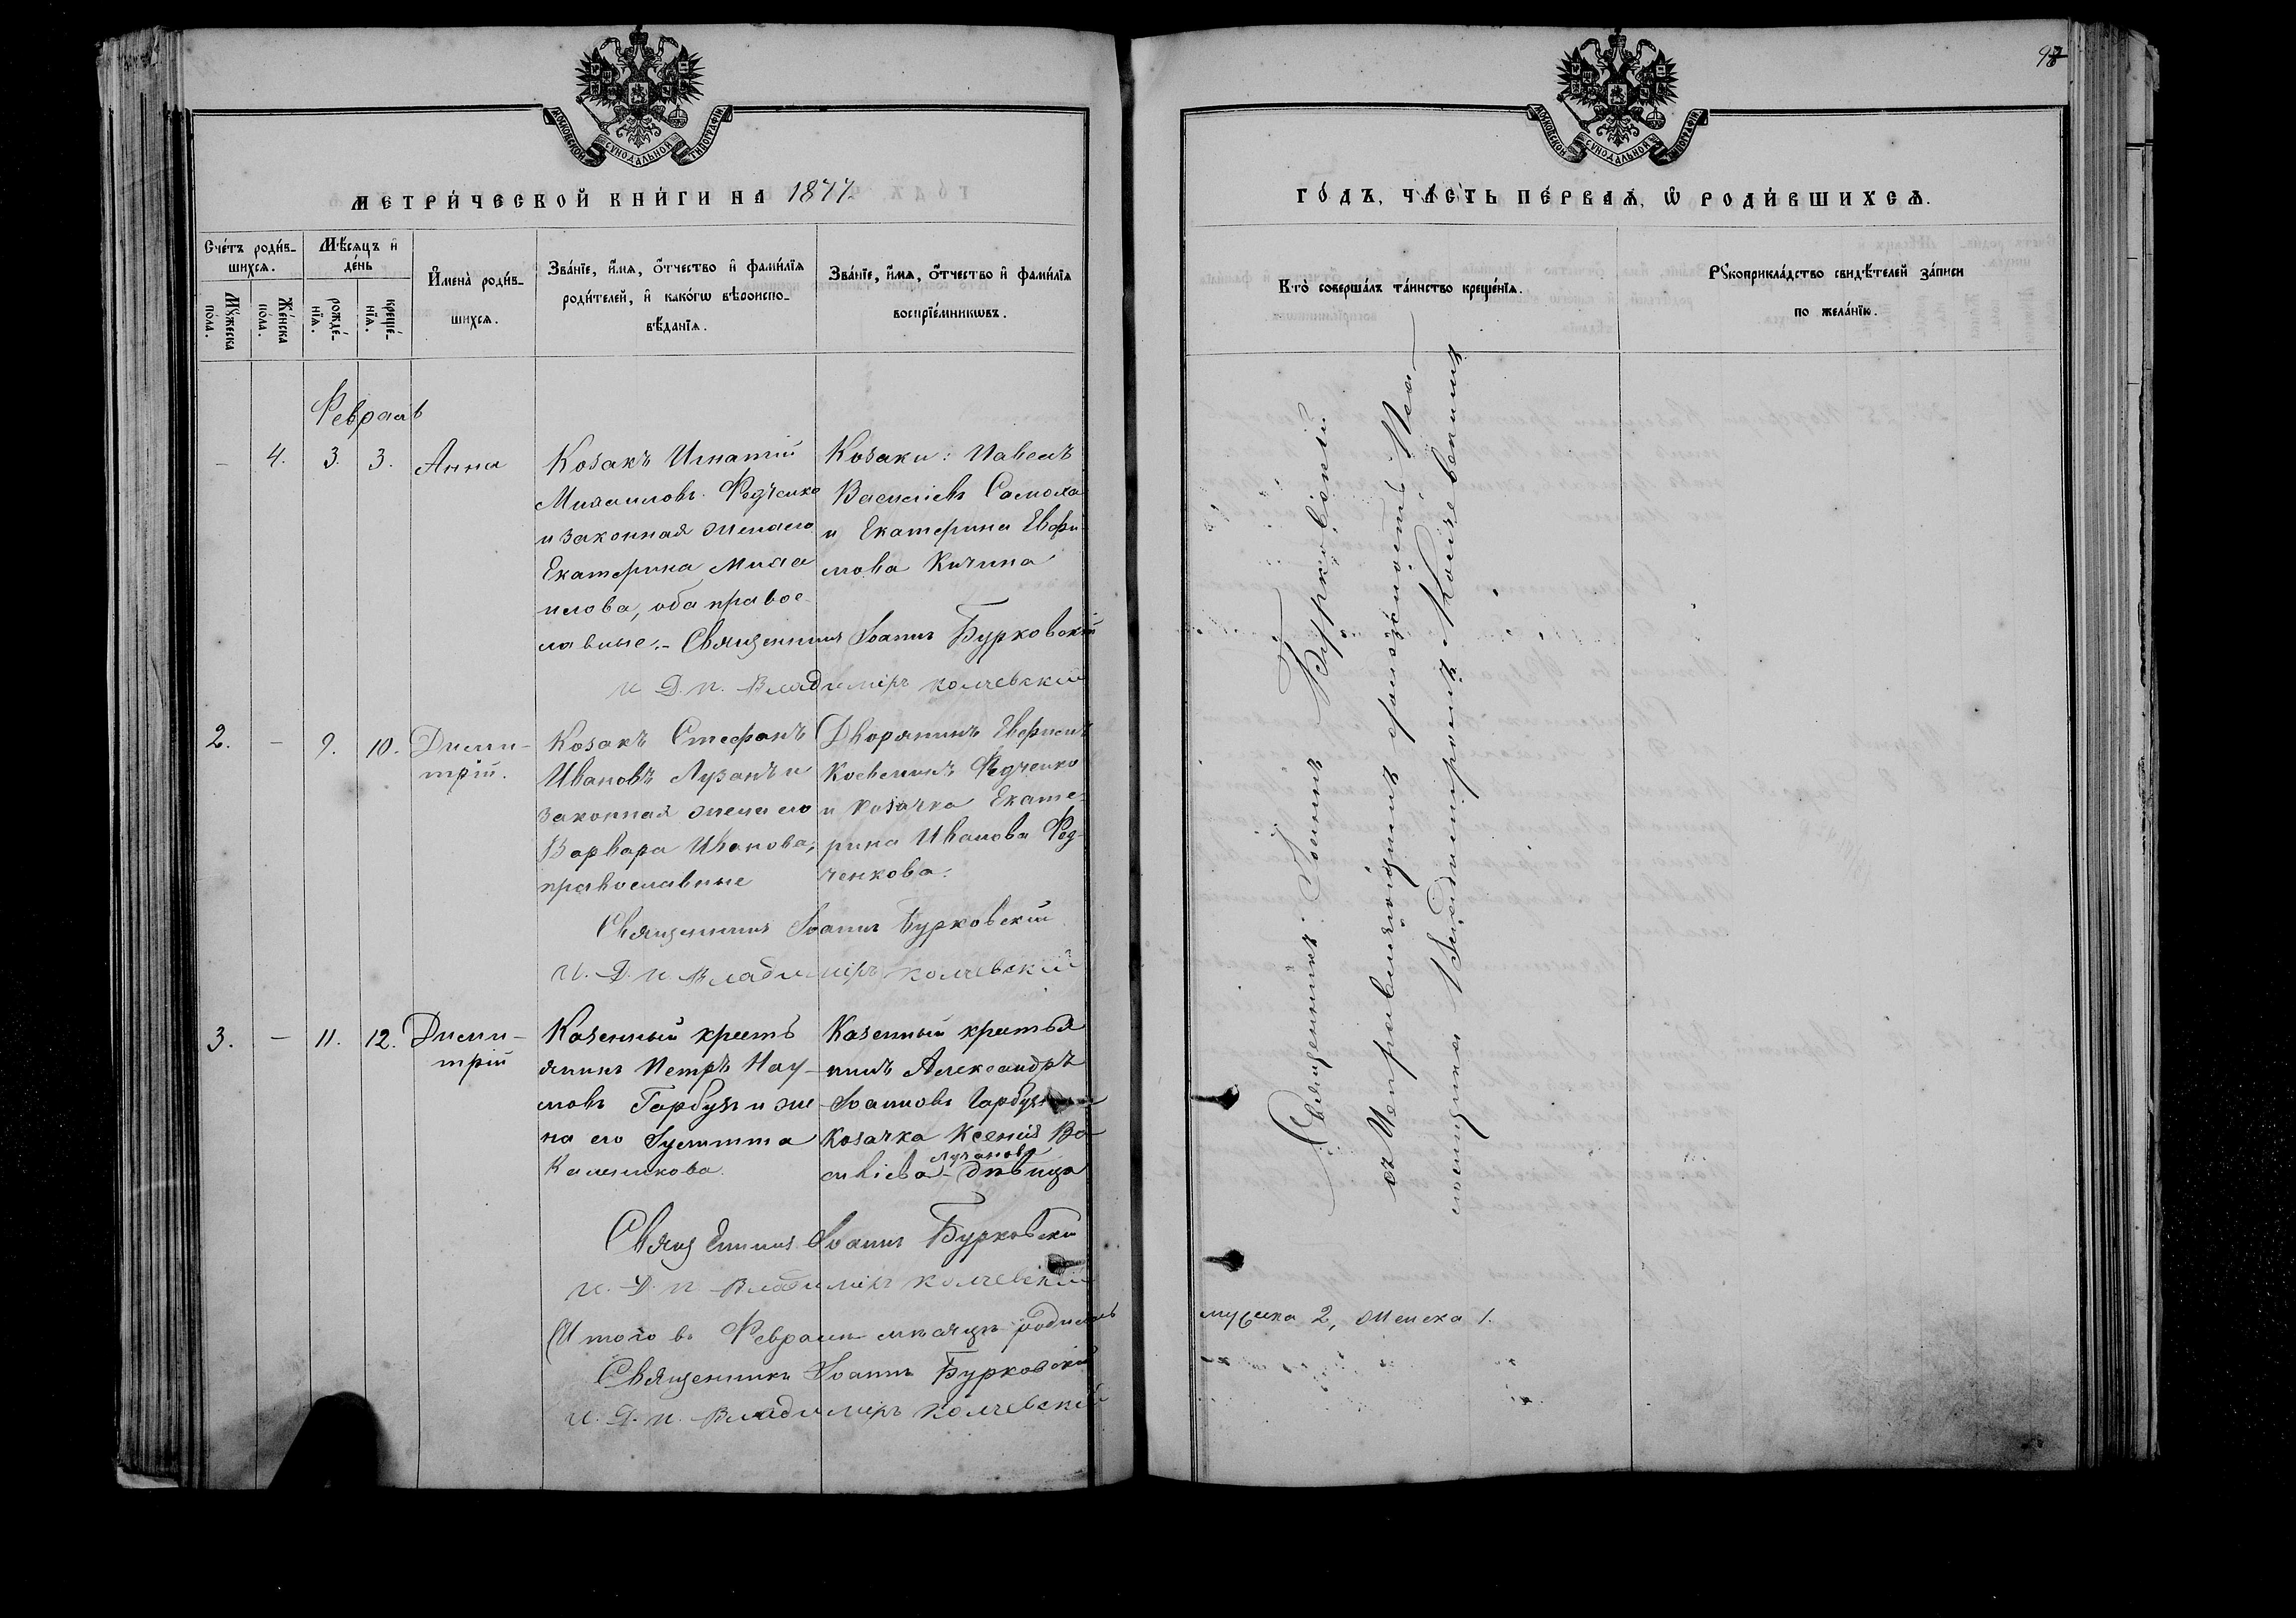 МОСКОВСКОЙ СѴНОДАЛЬНОЙ ТИПОГРАФІИ
МЕТРИ́ЧЕСКОЙ КНИ́ГИ НА 1877.
Сче́тъ роди́в-
шихсѧ.
Мѣ́сѧцъ и҆
де́нь
Мꙋ́жеска
по́ла.
Же́нска
по́ла.
рожде́-
нїѧ.
креще́-
нїѧ.
И҆мена̀ роди́в-
шихсѧ.
Зва́нїе, и҆́мѧ, ѻ҆́тчество и҆ фамѝлїѧ
роди́телей, и҆ како́гѡ вѣроиспо-
вѣ́данїѧ.
Зва́нїе, и҆́мѧ, ѻ҆́тчество и҆ фамѝлїѧ
воспрїе́мникѡвъ.
Февраль
– 4. 3. 3. Анна
Козакъ Игнатій
Михаиловъ Федченко
и законная жена его
Екатерина Михаи
лова, оба правос
лавные.-
Козаки: Павелъ
Василіевъ Самоха
и Екатерина Евфи
мова Кичина
Священникъ Іоаннъ Бурковскій
И. Д. п. Владиміръ Колчевскій
2. – 9. 10. Дими-
трій.
Козакъ Стефанъ
Ивановъ Лузанъ и
законная жена его
Варвара Иванова,
православные
Дворянинъ Евфимъ
Федченко
и козачка Екате-
рина Иванова Фед-
ченкова.
Священникъ Іоаннъ Бурковскій
И. Д. п Владиміръ Колчевскій
3. – 11. 12. Дими-
трій
Казенный кресть
янинъ Петръ Нау-
мовъ Гарбузъ и же
на его Іулитта
Каленикова.
Казенный крестья
нинъ Александръ
Іоанновъ Гарбузъ и
козачка Ксенія Ва
силіева Лузанова дѣвица
Священникъ Іоаннъ Бурковскій
И. Д. п Владиміръ Колчевскій
Итого въ Февралѣ мѣсяцѣ родилось
Священникъ Іоаннъ Бурковскій
И. Д. п. Владиміръ Колчевскій
МОСКОВСКОЙ СѴНОДАЛЬНОЙ ТИПОГРАФІИ
ГО́ДЪ, ЧА́СТЬ ПЕ́РВАѦ, Ѡ҆ РОДИ́ВШИХСѦ.
Кто̀ соверша́лъ та́инство креще́нїѧ.
Рꙋкоприкла́дство свидѣ́телей за́писи
по жела́нїю.
Священникъ Іоаннъ Бурковскій
съ Исправляющимъ должность Пса
ломщика Владиміромъ Колчевскимъ
мужска 2, женска 1.